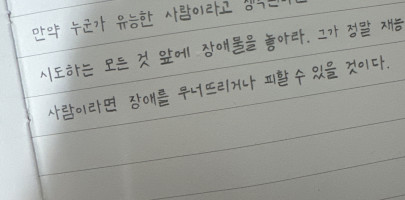 만약 누군가 유능한 사람이라고
시도하는 모든 것 앞에 장애물을 놓아라. 그가 정말 재능
사람이라면 장애를 무너뜨리거나 피할 수 있을 것이다.